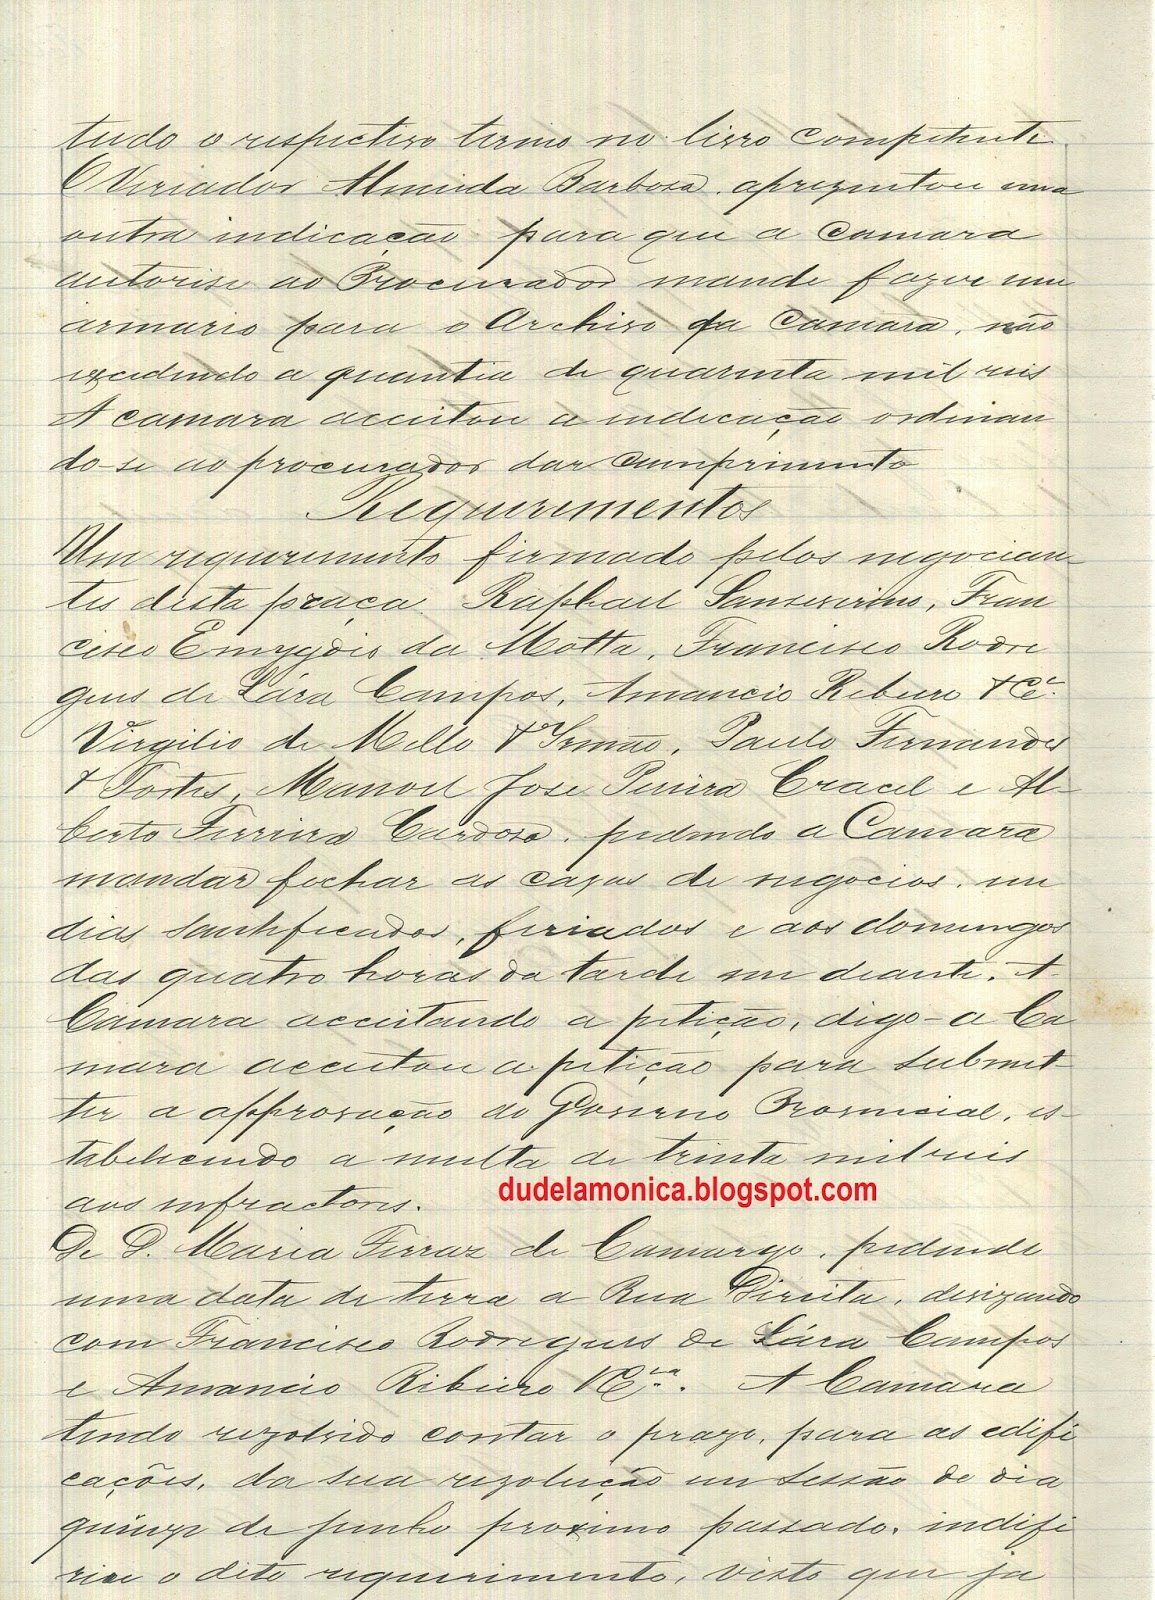 tudo o respectivo termo no livro competente.
O Veriador Almeida Barbosa, aprezentou uma
outra indicação para que a Camara
autorise ao Procurador mande fazer um
armario para o Archivo da Camara, não
excedendo a quantia de quarenta mil reis
A camara acceitou a indicação ordinan
do-se ao procurador dar cumprimento
Requerimentos
Um requerimento firmado pelos negocian-
tes desta praça Raphael Sanseverino, Fran
cisco Emygdio da Motta, Francisco Rodri
gues de Lára Campos, Amancio Ribeiro & Cª.
Virgilio de Mello & Irmão, Paulo Fernandes
& Fortes, Manoel Jose Pereira Cracel e Al-
berto Ferreira Cardoso, pedindo a Camara
mandar fechar as cazas de negocios, em
dias santificados, feriados e aos domingos
das quatro horas da tarde em deante. A
Camara acceitando a petição, digo-a Ca
mara acceitou a petição para submet-
ter a approvação do Governo Provincial, es-
tabelecendo a multa de trinta mil reis
aos infractores.
dudelamonica.blogspot.com
De D. Maria Ferraz de Camargo, pedindo
uma data de terra a Rua Direita, devizando
com Francisco Rodrigues de Lára Campos
e Amancio Ribeiro & Cia. A Camara
tendo rezolvido contar o prazo, para as edifi
cações, da sua rezolução em sessão do dia
quinze de junho proximo passado, indife
rio o dito requerimento, visto que ja